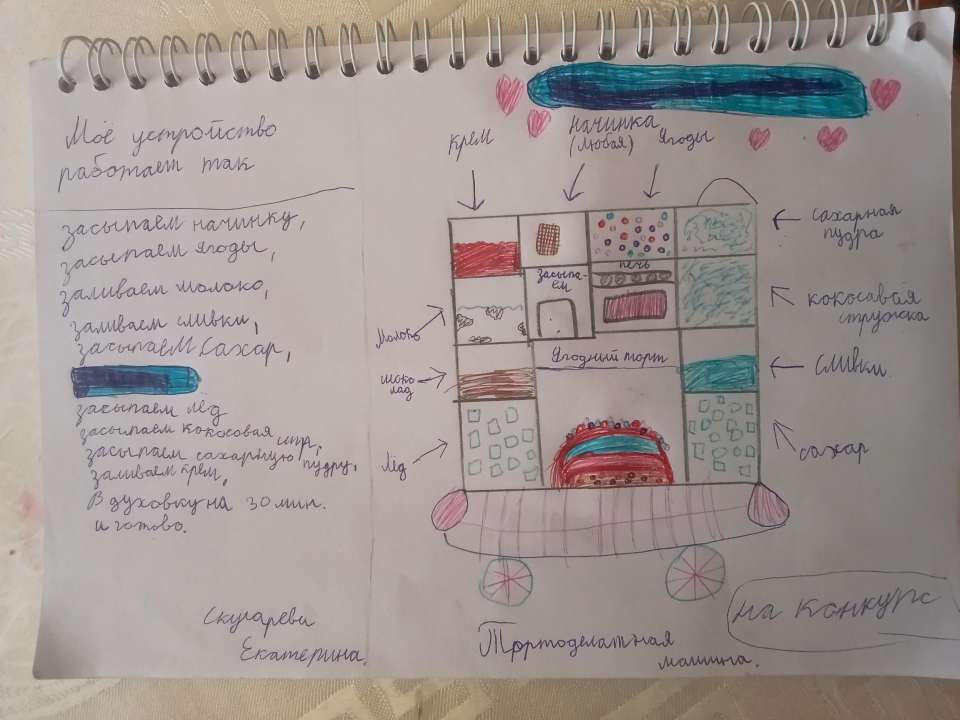 Моё устройство
работает так
засыпаем начинку,
засыпаем ягоды,
заливаем молоко,
заливаем сливки,
засыпаем сахар,
засыпаем лёд
засыпаем кокосовая стр,
засыпаем сахарную пудру,
заливаем крем,
В духовку на 30 мин.
и готово.
Екатерина.
крем
начинка
(любая) ягоды
сахарная
пудра
кокосавая
стружка
сливки
сахар
молоко
шоко
лад
лёд
засыпа-
ем
печь
Ягодный торт
Тортоделатная
машина.
на конкурс